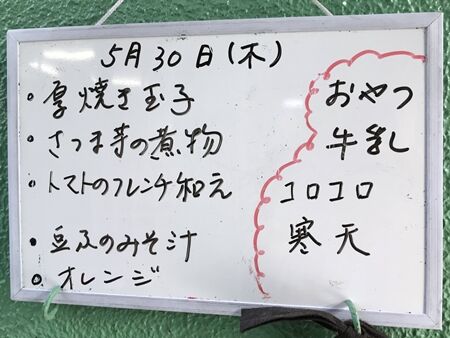 5月30日(木)
・厚焼き玉子
・さつま芋の煮物
・トマトのフレンチ和え
・豆ふのみそ汁
・オレンジ
おやつ
牛乳
コロコロ
寒天